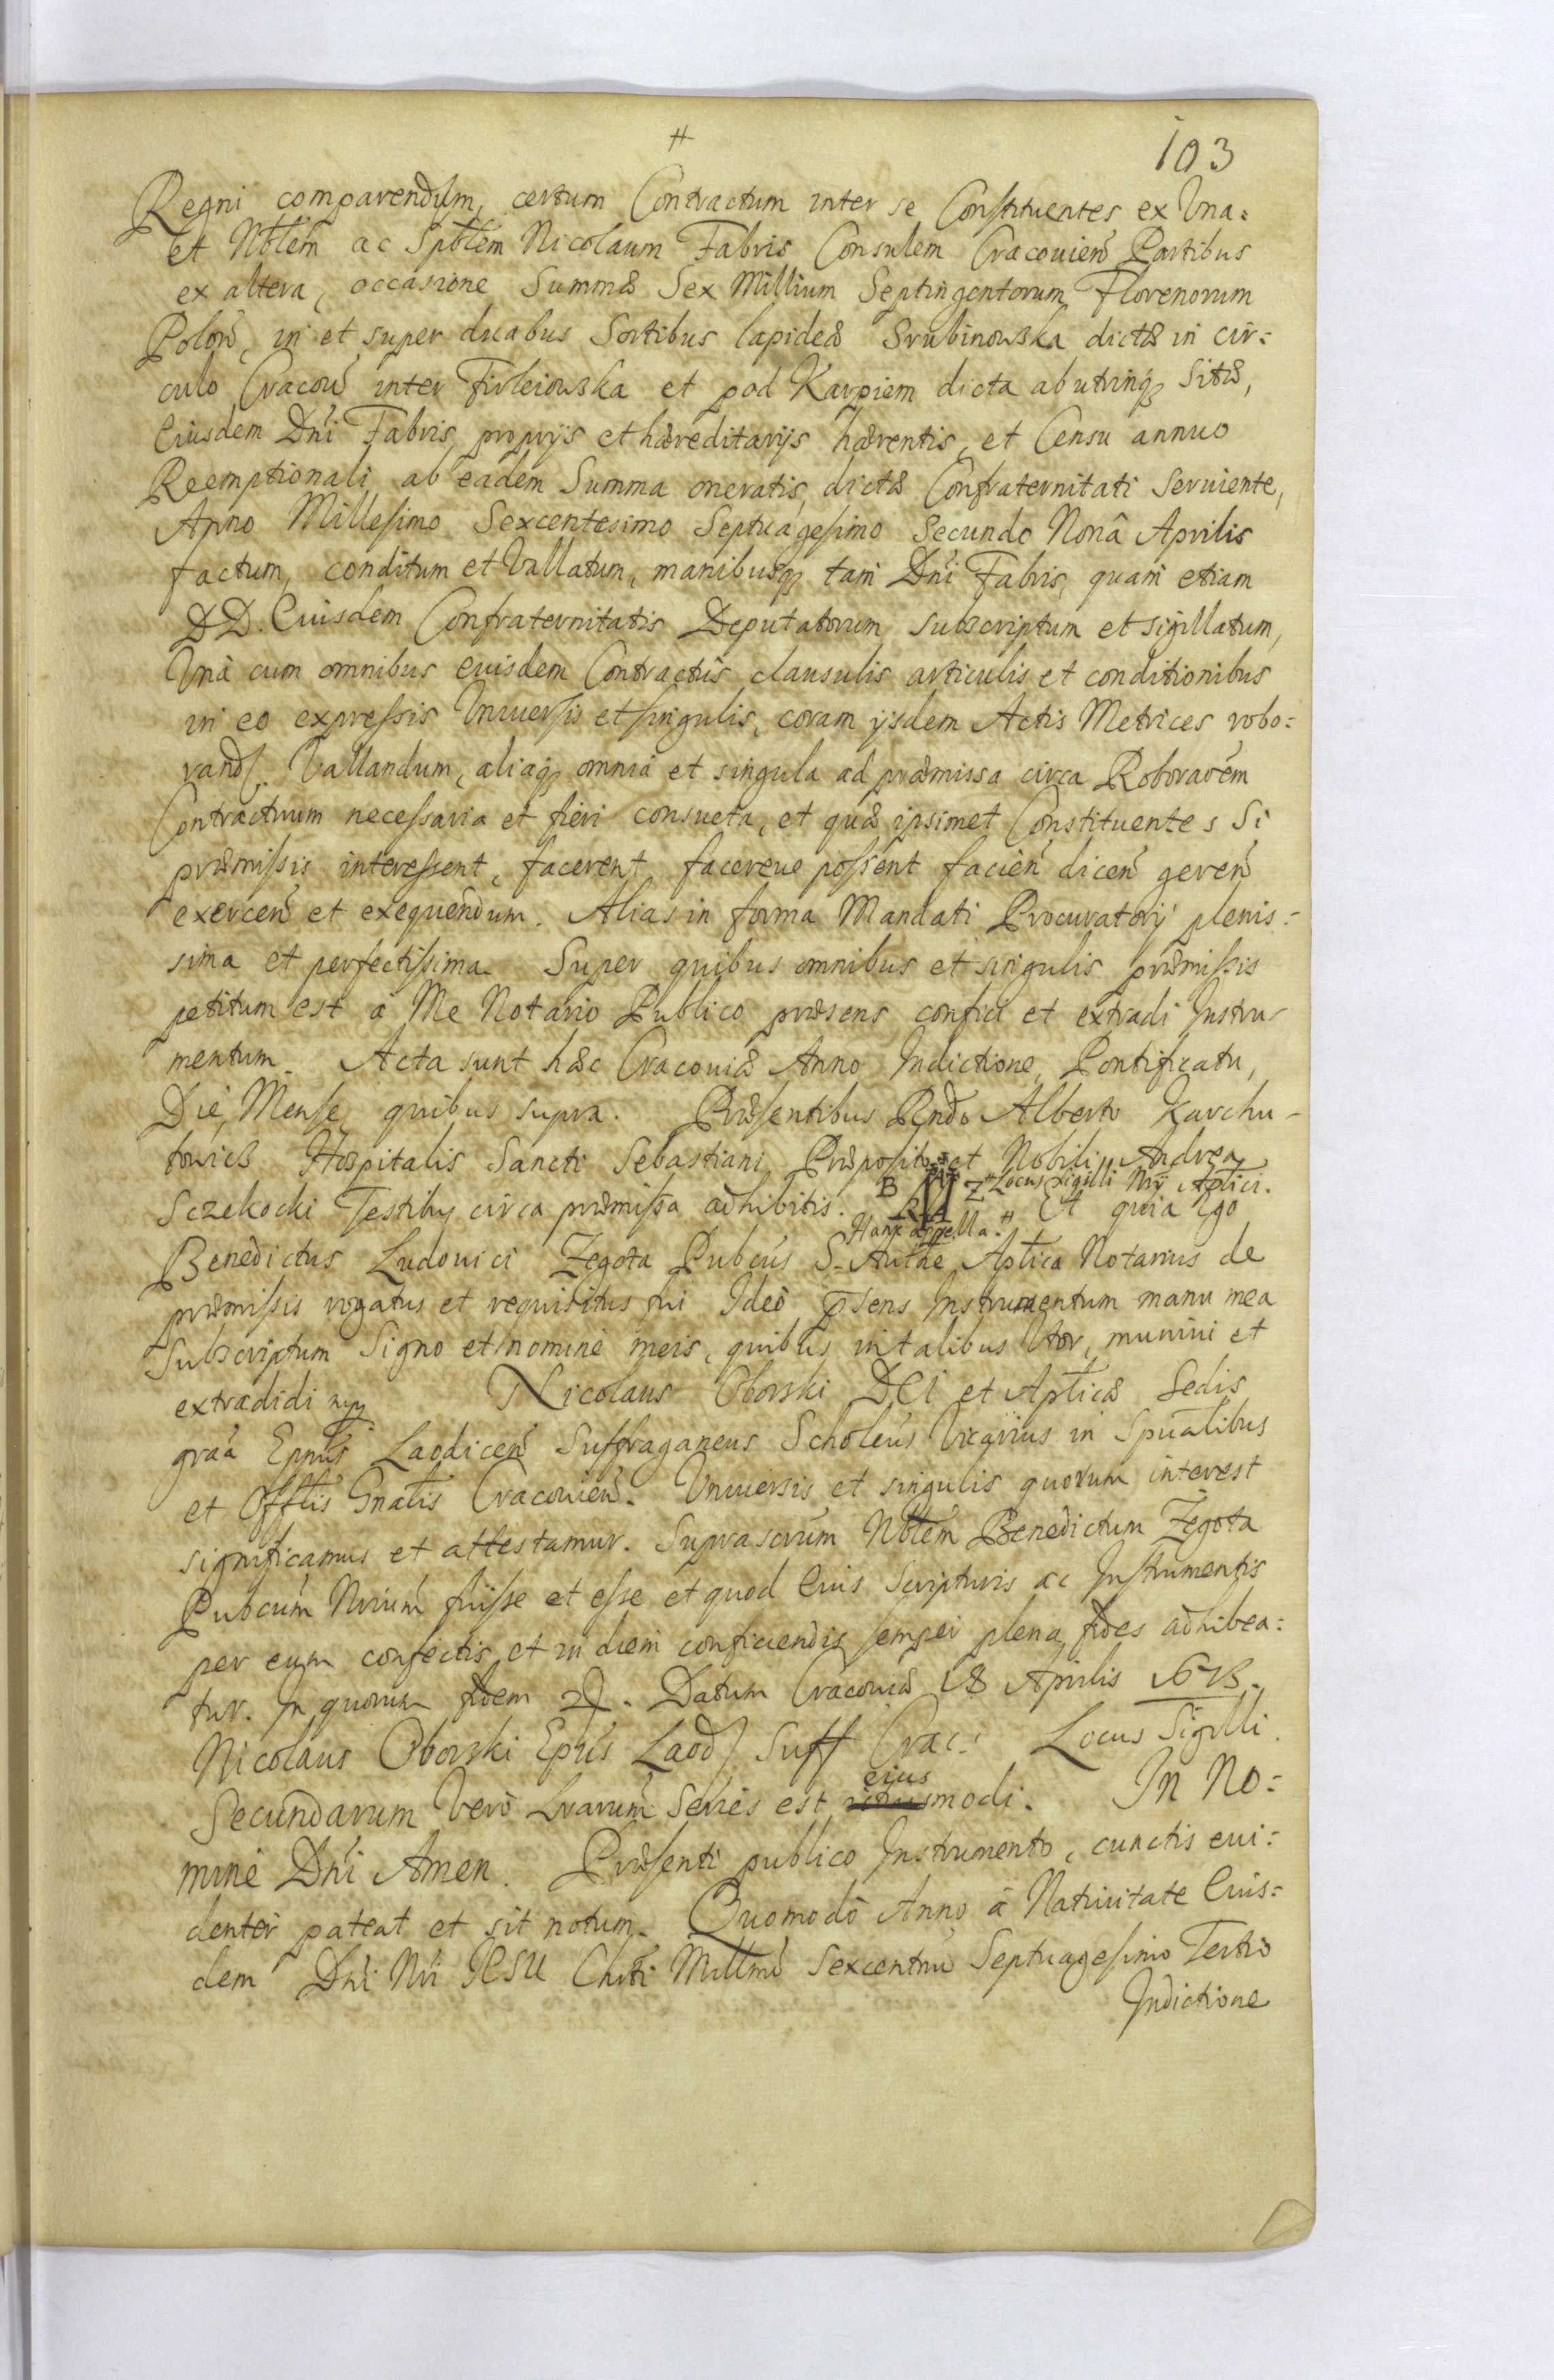 #
103
Regni comparendum, certum Contractum inter se Constituentes ex Una=
et Nobłem ac Spłtem Nicolaum Fabris Consulem Cracouień Partibus
ex altera, occasione Summæ Sex Millium Septingentorum Florenorum
Polon̄, in et super duabus Sortibus lapideæ Srubinowska dictæ in cir=
culo Cracou̅ inter Firleiowska et pod Karpiem dicta ab utrinq; Sitæ,
Eiusdem Dn̄i Fabris proprijs et hæreditarijs hærentis, et Censu annuo
Reemptionali ab eadem Summa oneratis, dictæ Confraternitati Seruiente,
Anno Millesimo Sexcentesimo Septuagesimo Secundo Nonâ Aprilis
factum, conditum et Vallatum, manibusq; tam Dn̄i Fabris, quam etiam
DD. Eiusdem Confraternitatis Deputatorum subscriptum et sigillatum,
Unà cum omnibus eiusdem Contractûs clausulis articulis et conditionibus
in eo expressis Uniuersis et singulis, coram ijsdem Actis Metrices robo=
rand. Vallandum, aliaq; omnia et singula ad præmissa circa Roboraoēm
Contractuum necessaria et fieri consueta, et quæ ipsimet Constituentes Si
præmissis interessent, facerent facereue possent facień dicen̄ geren̄
exercen̄ et exequendum. Alias in forma Mandati Procuratorij plenis=
sima et perfectissima. Super quibus omnibus et singulis præmissis
petitum est à Me Notario Publico præsens confici et extradi Instru-
mentum. Acta sunt hæc Cracouiæ Anno Indictione, Pontificatu,
Die, Mense quibus supra. Præsentibus Rndo Alberto Karchu-
towicz Hospitalis Sancti Sebastiani Præposito et Nobili Andrea
B Z "Locus Sigilli Nrij Aptici.
Sczekocki Testiby circa præmissa adhibitis. R A Et quia Ego
Benedictus Ludouici Zegota Pubcus S. Authe Aptica Notarius de
præmissis rogatus et requisitus fui Ideò p̄sens Instrumentum manu mea
Subscriptum Signo et nomine meis, quibus in talibus Utor, muniui et
extradidi mpp Nicolaus Oborski DEI et Apticæ Sedis
graā Eppūs Laodicen̄ Suffraganeus Scholcūs Vicarius in Spualibus
et Offtis Gnalis Cracouien̄. Uniuersis et singulis quorum interest
significamus et attestamur. Suprascrum Nobłem Benedictum Zegota
Pubcum Nrium fuisse et esse et quod Eius Scripturis ac Instrumentis
per eum confectis et in diem conficiendis semper plena fides adhibea=
tur. In quorum fidem &. Datum Cracouiæ 18 Aprilis 1673.
Nicolaus Oborski Epūs Laod Suff Crac: Locus Sigilli.
eius
Secundarum Verò Lrarum Series est modi. In No=
mine Dn̄i Amen. Præsenti publico Instrumento, cunctis eui=
denter pateat et sit notum. Quomodò Anno à Natiuitate Eius=
dem Dn̄i Nri IESU Chrti Millmo Sexcentmo Septuagesimo Tertio
Indictione